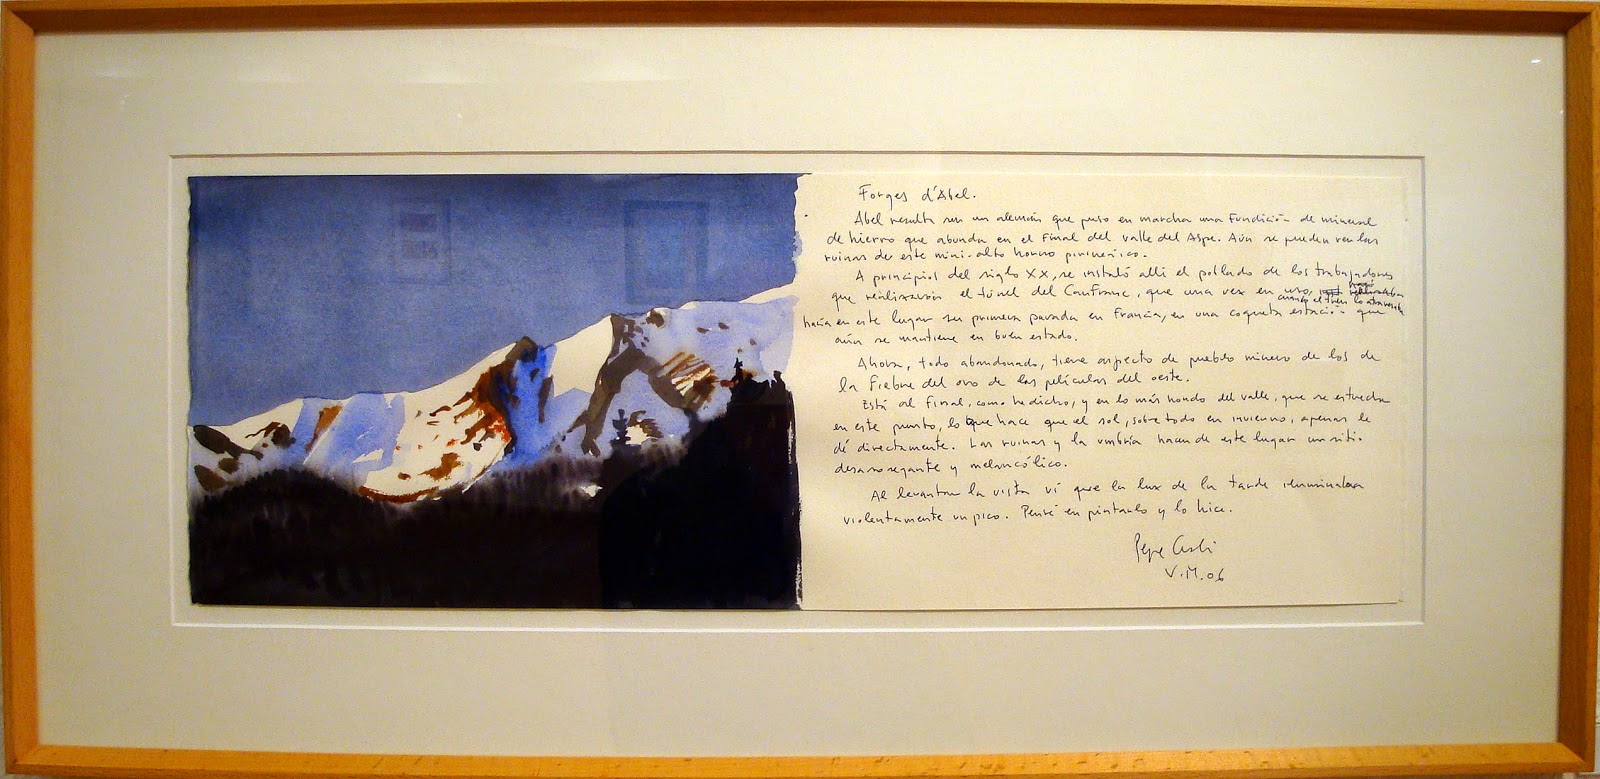 Forges d'Abel.
Abel resulta ser un alemán que puso en marcha una Fundición de mineral
de hierro que abunda en el Final del valle del Aspe. Aún se pueden ver las
ruinas de este mini-alto horno pirenáico.
A principios del siglo XX, se instaló allí el poblado de los trabajadores
que realizarón el túnel del Canfranc, que una vez en uso,
cuando el tren lo atravesaba
hacía en este lugar su primera parada en Francia, en una coqueta estación que
aún se mantiene en buen estado.
Ahora, todo abandonado, tiene aspecto de pueblo minero de los de
la Fiebre del oro de las películas del oeste.
Está al Final, como he dicho, y en lo más hondo del valle, que se estrecha
en este punto, lo que hace que el sol, sobre todo en invierno, apenas le
dé directamente. Las ruinas y la umbría hacen de este lugar un sitio
desasosegante y melancólico.
Al levantar la vista ví que la luz de la tarde iluminaba
violentamente un pico. Pensé en pintarlo y lo hice.
Pepe
V.M.06